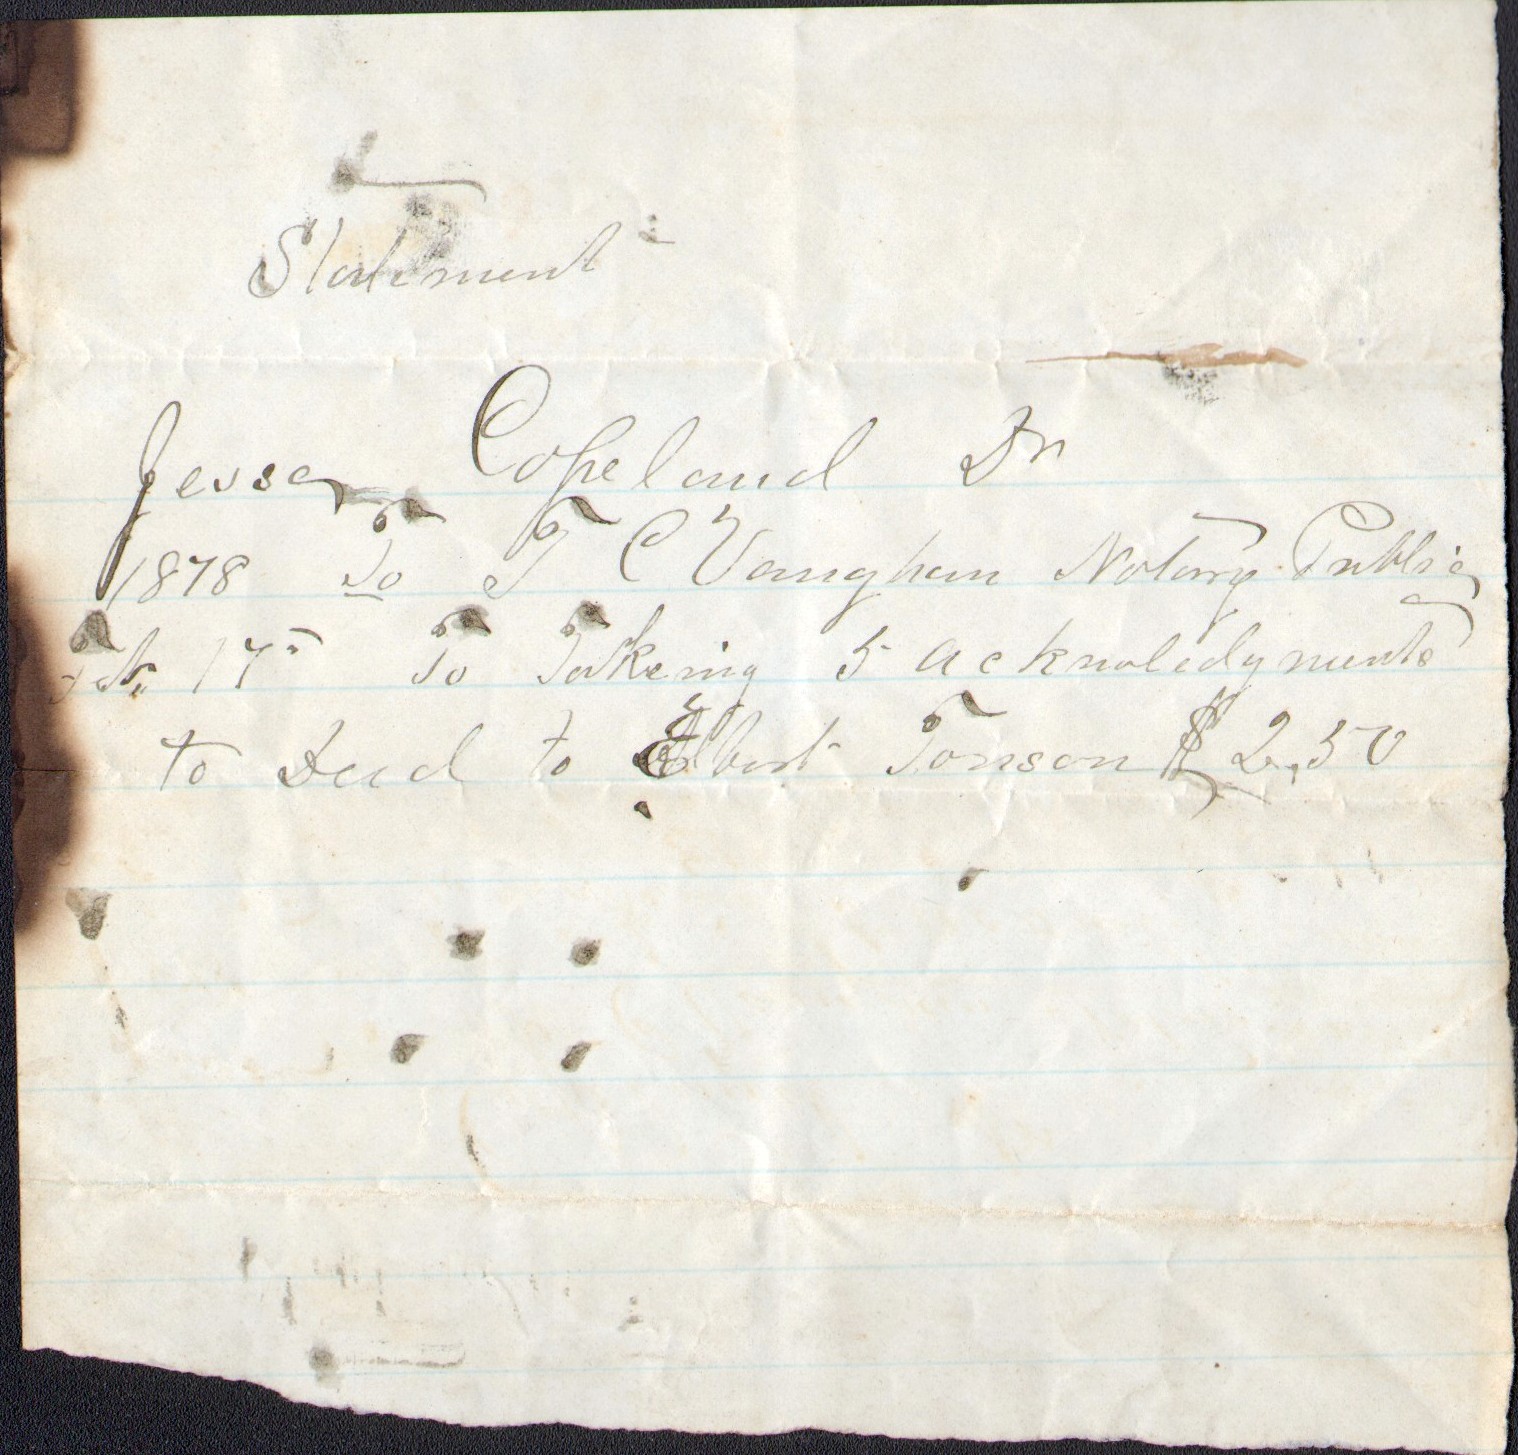 Statement
Jesse Copeland Dr
1878 To T C Vaughan Notary Public
Feb. 17" To Takeing 5 acknoledgments
to Deed to Elbert Tonson $2.50